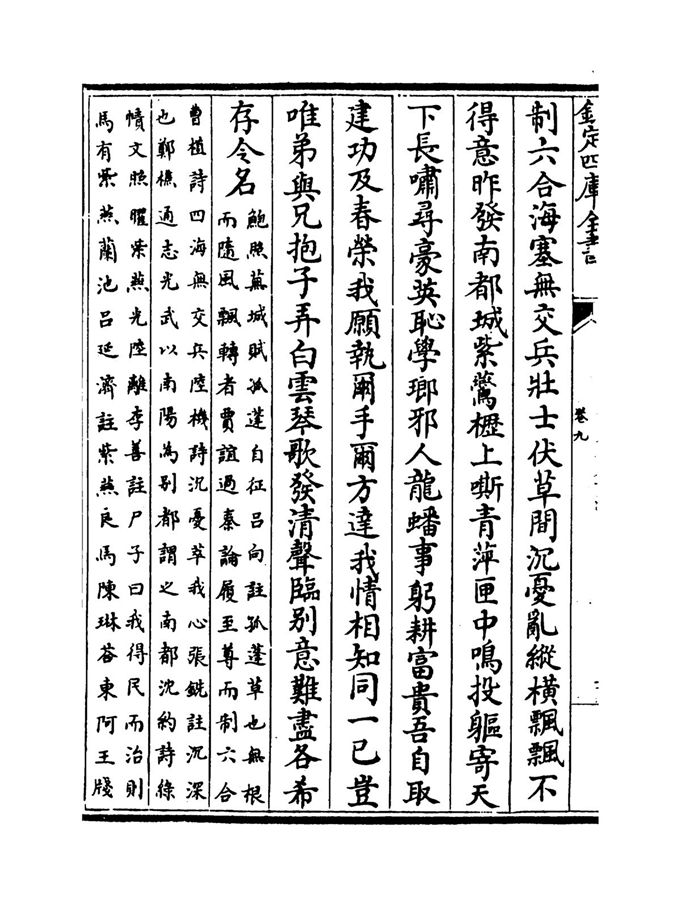 欽定四庫全書
卷九
制六合海塞無交兵壯士伏草間沉憂亂縱橫飄飄不
得意昨發南都城紫鷰櫪上嘶青萍匣中鳴投軀寄天
下長嘯尋豪英恥學瑯邪人龍蟠事躬耕富貴吾自取
建功及春榮我願執爾手爾方達我情相知同一已豈
唯弟與兄抱子弄白雲琴歌發清聲臨別意難盡各希
存令名
鮑照蕪城賦孤蓬自征呂向註孤蓬草也無根
而隨風飄轉者賈誼過秦論履至尊而制六合
曹植詩四海無交兵陸機詩沉憂萃我心張銑註沉深
也鄭樵通志光武以南陽為别都謂之南都沈約詩綠
幘文照曜紫燕光陸離李善註尸子曰我得民而治則
馬有紫燕蘭池呂延濟註紫燕良馬陳琳荅東阿王牋